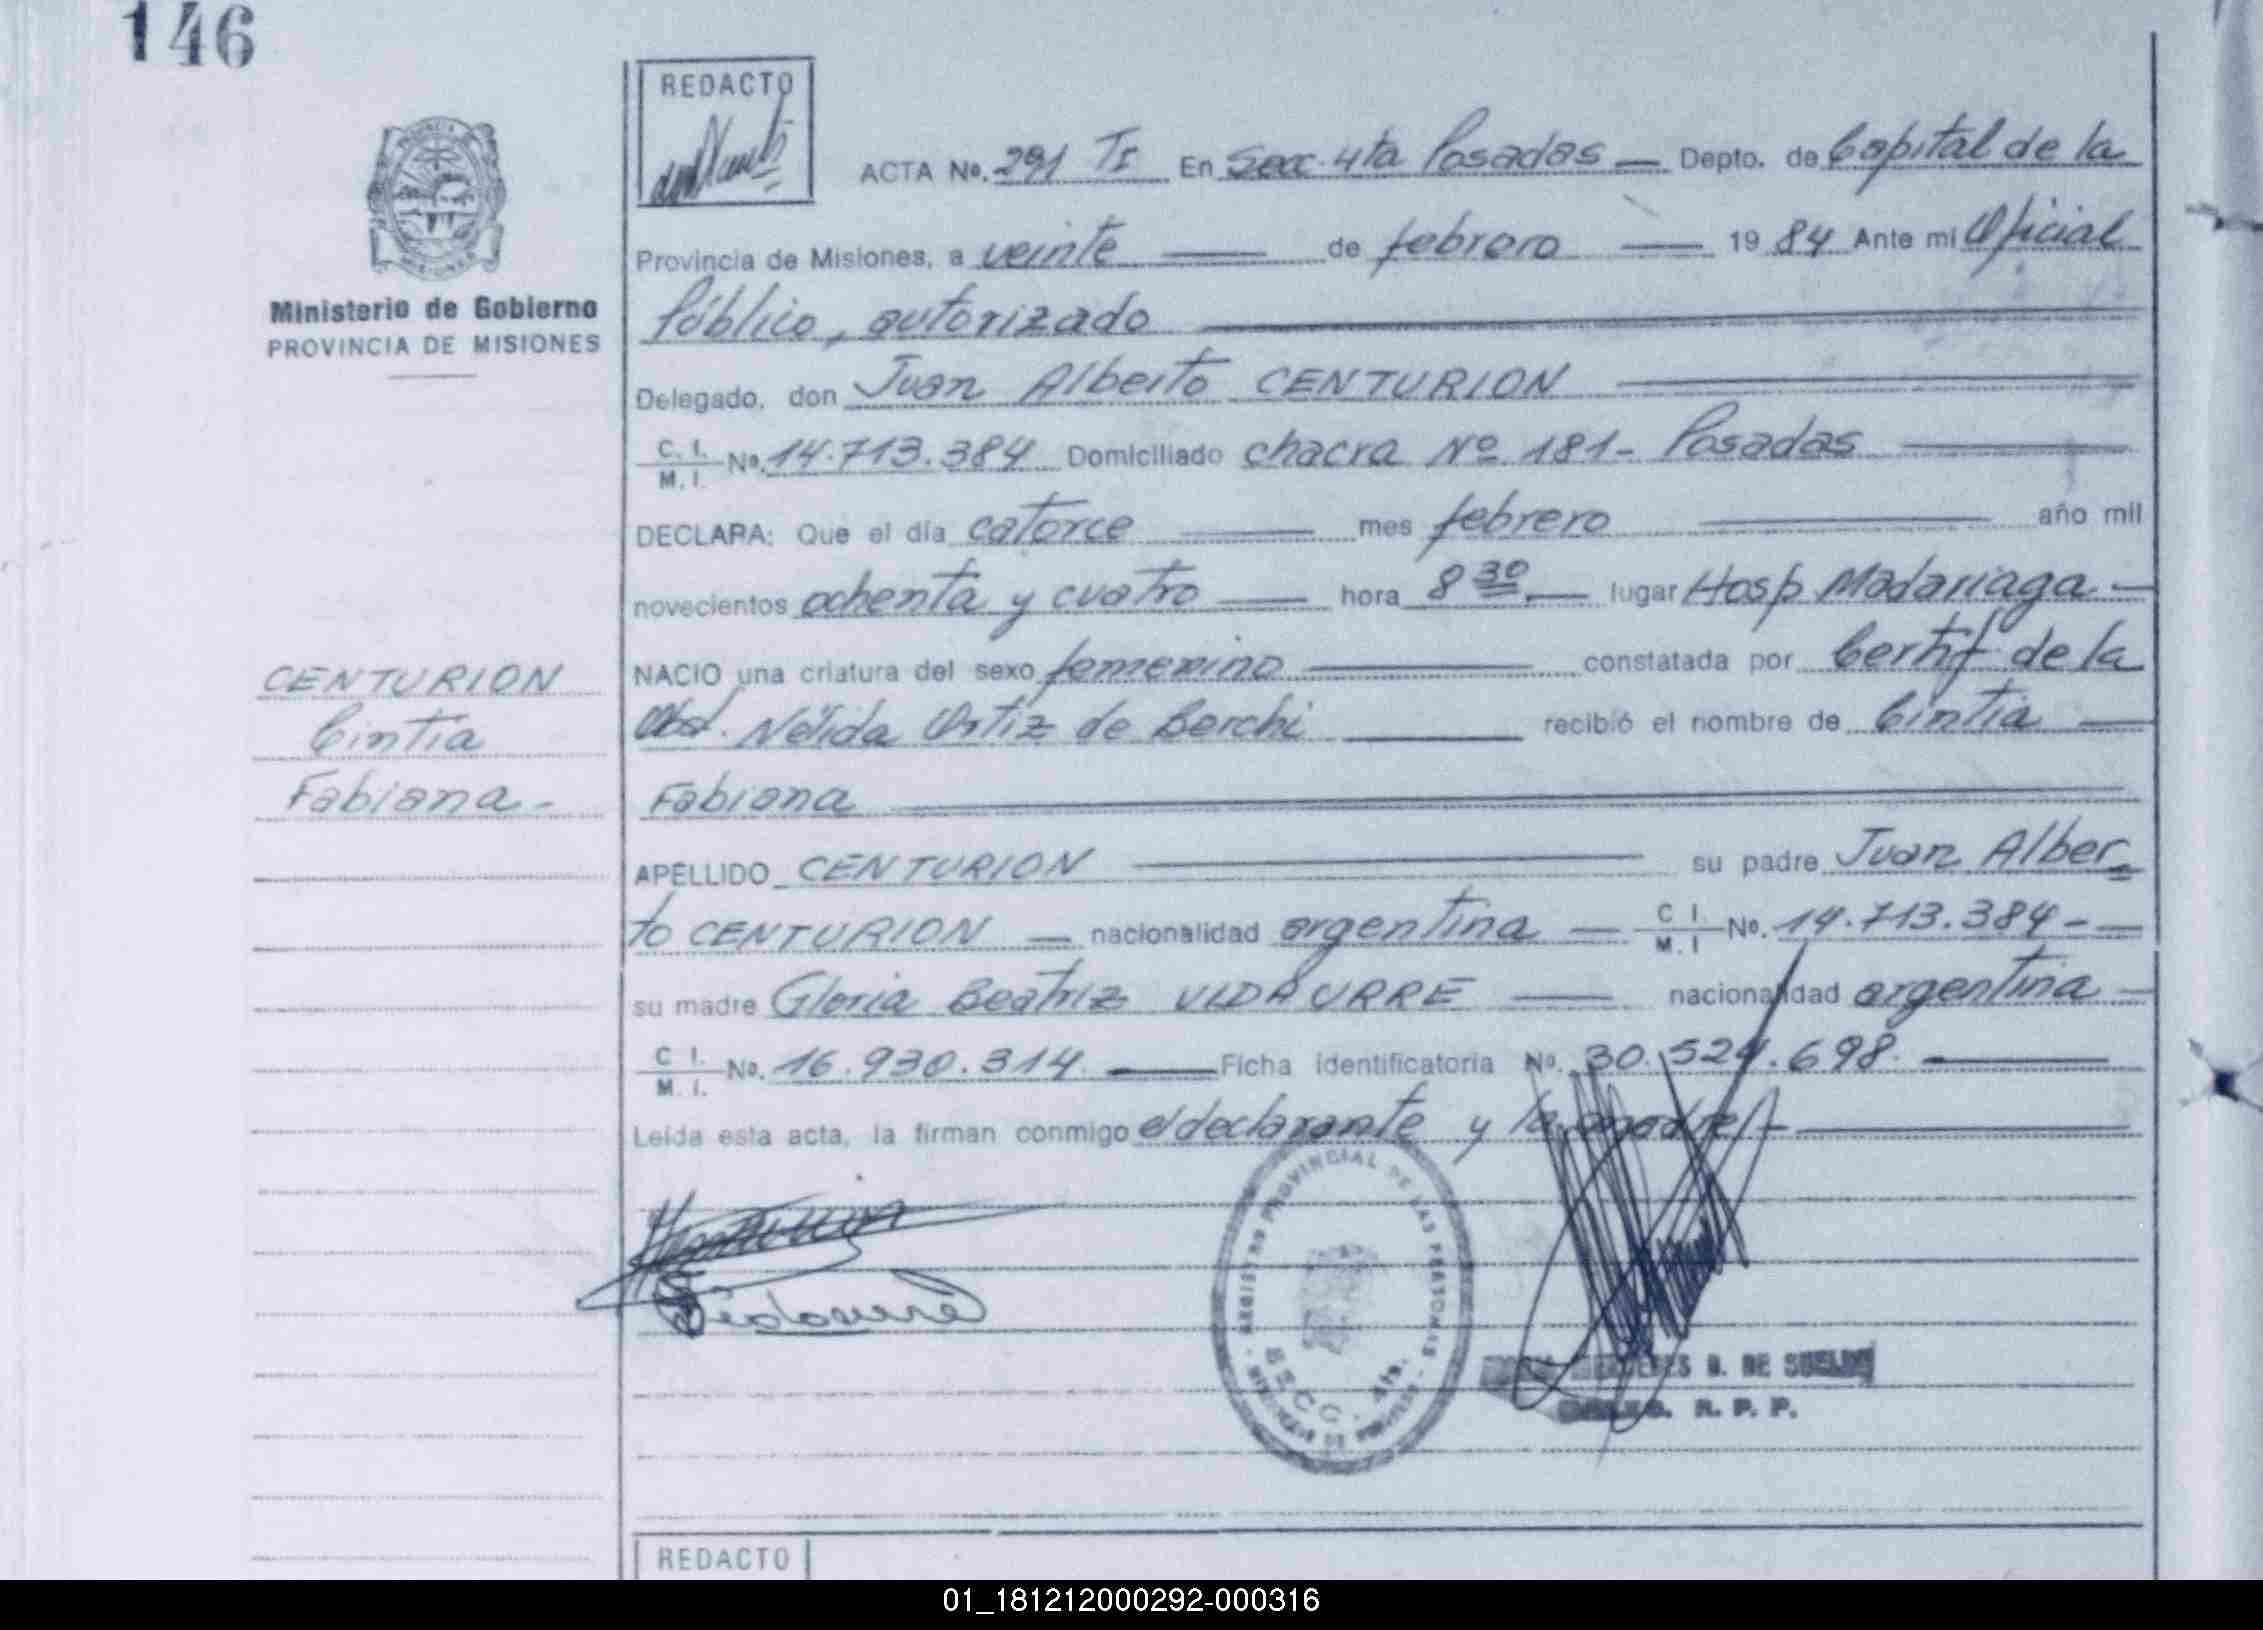 146
REDACTO
ACTA No. 291 TI En Secc. 4ta Posadas — Depto. de Capital de la
Provincia de Misiones, a veinte — de febrero — 1984 Ante mi Oficial
Público, autorizado
Delegado, don Juan Alberto CENTURION
C. I. / M. I. No. 14.713.384 Domiciliado chacra Nº 181- Posadas
DECLARA: Que el día catorce — mes febrero — año mil
novecientos ochenta y cuatro — hora 8 30 — lugar Hosp Madariaga —
NACIO una criatura del sexo femenino — constatada por Certif de la
Obst. Nélida Ortiz de Berchi — recibió el nombre de Cintia —
Fabiana
APELLIDO CENTURION — su padre Juan Alber=
to CENTURION — nacionalidad argentina — C I. / M. I No. 14.713.384 - —
su madre Gloria Beatriz VIDAURRE — nacionalidad argentina —
C I. / M. I. No. 16.930.314. — Ficha identificatoria No. 30.524.698. —
Leída esta acta, la firman conmigo el declarante y la madre/-
Ministerio de Gobierno
PROVINCIA DE MISIONES
CENTURION
Cintia
Fabiana -
REGISTRO PROVINCIAL DE LAS PERSONAS
SECC. 4ta.
D. DE
R. P. P.
REDACTO
01_181212000292-000316